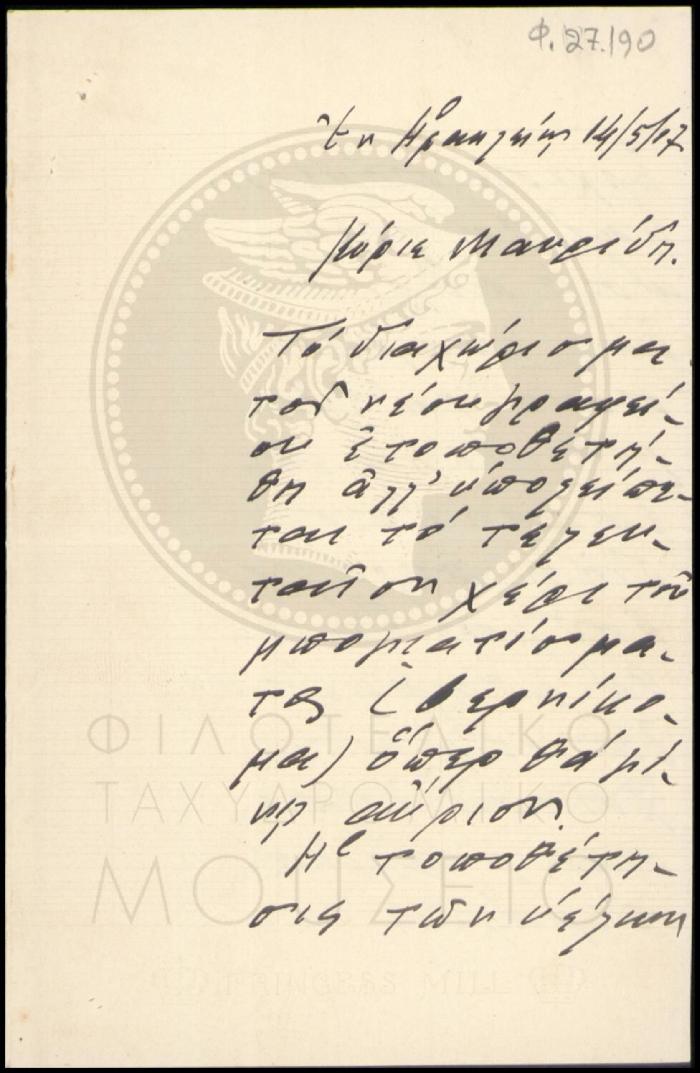 Φ. 27.190
Ἐν Ἡρακλείῳ 14/5/17
Κύριε Μαυρίδη.
Τό διαχώρισμα
τοῦ νέου γραφεί-
ου ἐτοποθετή-
θη ἀλλ' ὑπολείπε-
ται τό τελευ-
ταῖον χέρι τοῦ
μπογιατίσμα-
τος (βερνίκω-
μα) ὅπερ θά γί-
νῃ αὔριον.
Ἡ τοποθέτη-
σις τῶν ὑέλων
ΦΙΛΟΤΕΛΙΚΟ
ΤΑΧΥΔΡΟΜΙΚΟ
ΜΟΥΣΕΙΟ
PRINCESS MILL